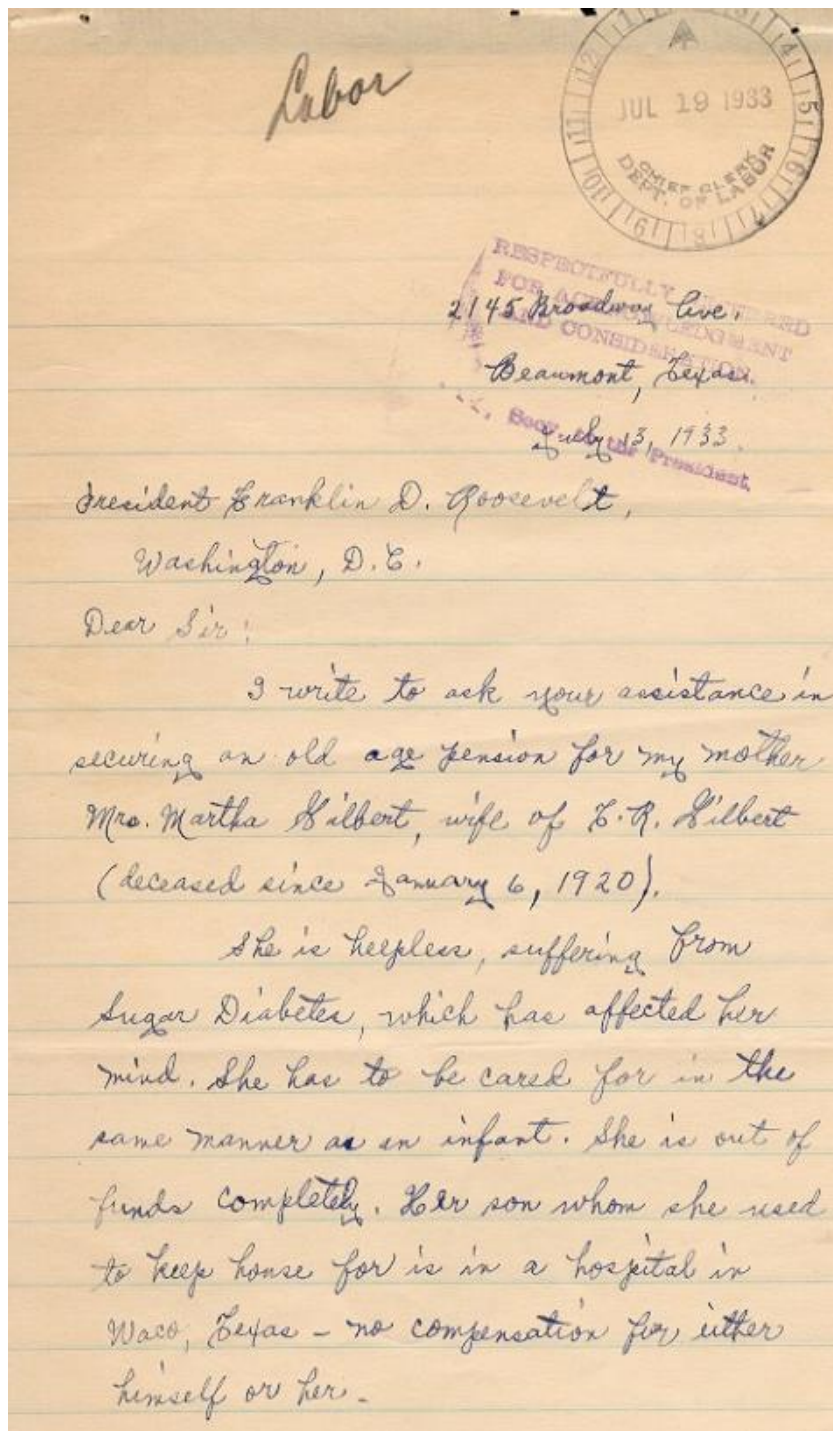 Labor
12 1 2 3 4 5 6 7 8 9 10 11
JUL 19 1933
CHIEF CLERK
DEPT. OF LABOR
RESPECTFULLY REFERRED
FOR ACKNOWLEDGMENT
AND CONSIDERATION.
Secy. to the President.
2145 Broadway Ave.
Beaumont, Texas.
July 13, 1933.
President Franklin D. Roosevelt,
Washington, D.C.
Dear Sir:
I write to ask your assistance in
securing an old age pension for my mother
Mrs. Martha Gilbert, wife of
R. Gilbert
(deceased since January 6, 1920).
She is helpless, suffering from
Sugar Diabetes, which has affected her
mind. She has to be cared for in the
same manner as an infant. She is out of
funds completely. Her son whom she used
to keep house for is in a hospital in
Waco, Texas – no compensation for either
himself or her –